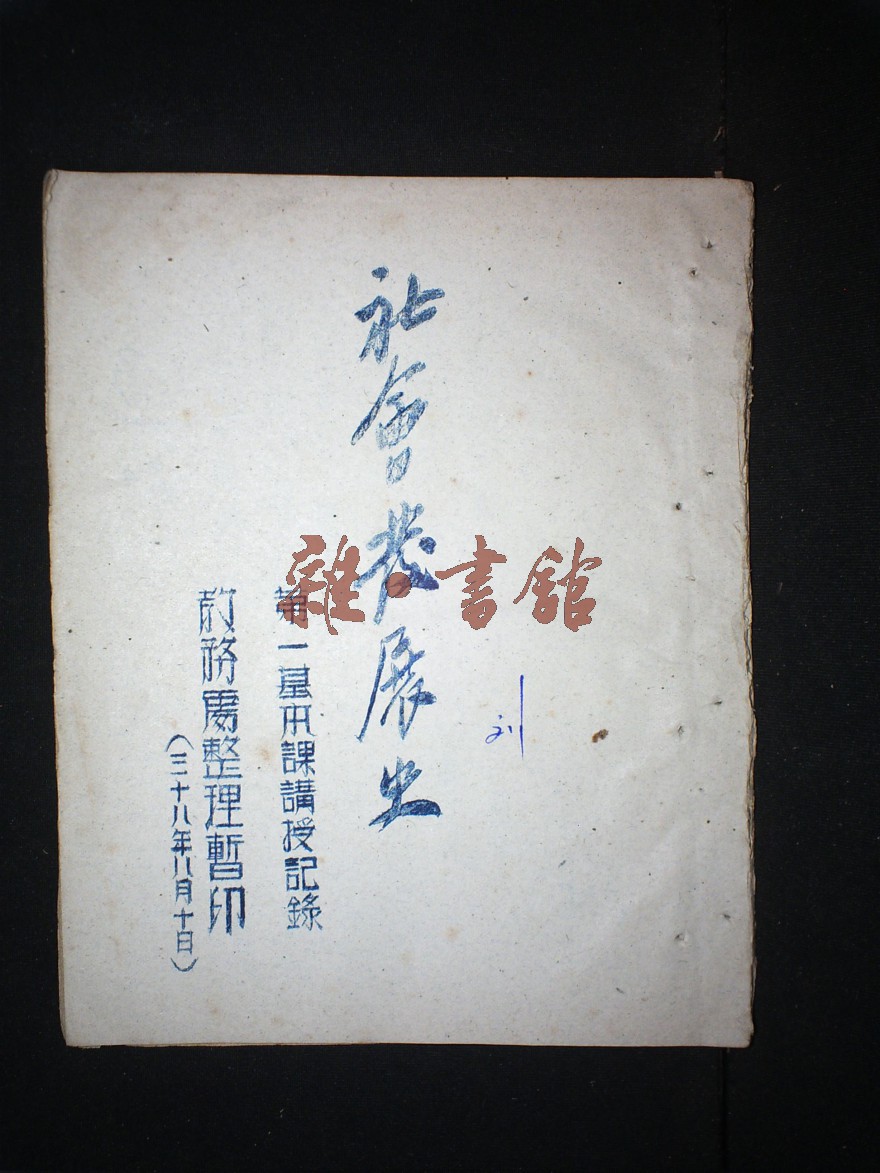 社會發展史
第一基本課講授記錄
教務處整理暫印
(三十八年八月十日)
刘
雜·書館